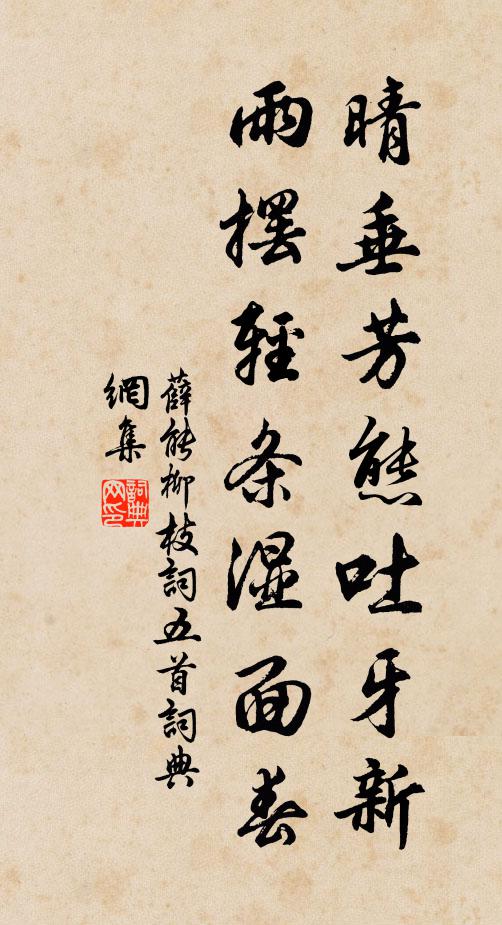 晴垂芳態吐牙新
雨擺輕条湿面春
薛能柳枝詞五首詞典
網集
詞典
网印